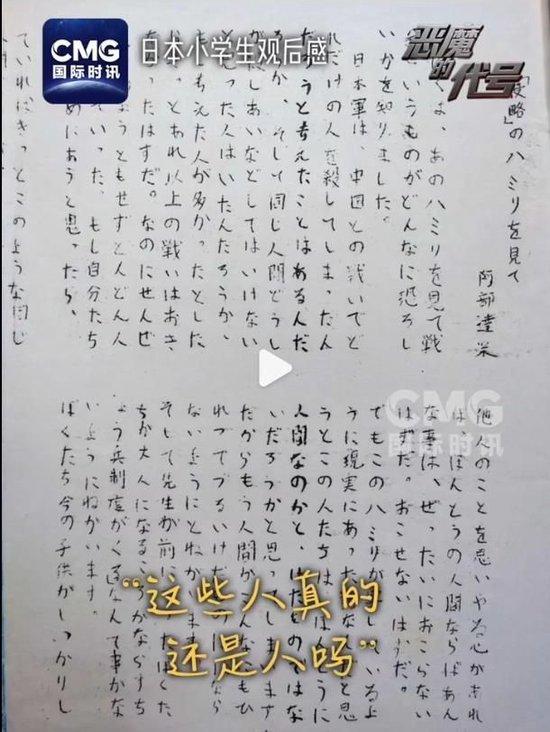 CMG
国际时讯
日本小学生观后感
恶魔的代号
略」のハミリを見て
阿部達栄
くは、あのハミリを見て戦
いうものがどんなに恐ろし
いかを知りました。
日本軍は、中国との戦いでど
れだけの人を殺してしまったん
だろうと考えたことはあるんだ
ろうか、そして同じ人間どうし
が殺しあいなどしてはいけない
と思った人はいたんだろうか、
考えた人が多かったとした
とあれ以上の戦いはおき
ったはずだ。なのにせんぜ
ようともせずとんどん人
ていった。もし自分たち
めにあうと思ったら、
ていればきっとこのような同じ
他人のことを思いやる心があれ
ば、ほんとうの人間ならばあん
な事は、ぜったいにおこらない
はずだ。おこせないはずだ。
でもこのハミリが している上
うに現実にあった と思
うとこの人たちは、ほんとうに
人間なのかと、けだものではな
いだろうかと思ってしまいます
だからもう人間がこんなにもひ
れつでずるいけだ なら
ないようにとねがいます
そして先生が前に ぼくた
ちが大人になるこ がならずち
ょう兵制度がくるなんて事がな
いようにねがいます。
ぼくたち今の子供がしっかりし
CMG
国际时讯
“这些人真的
还是人吗”